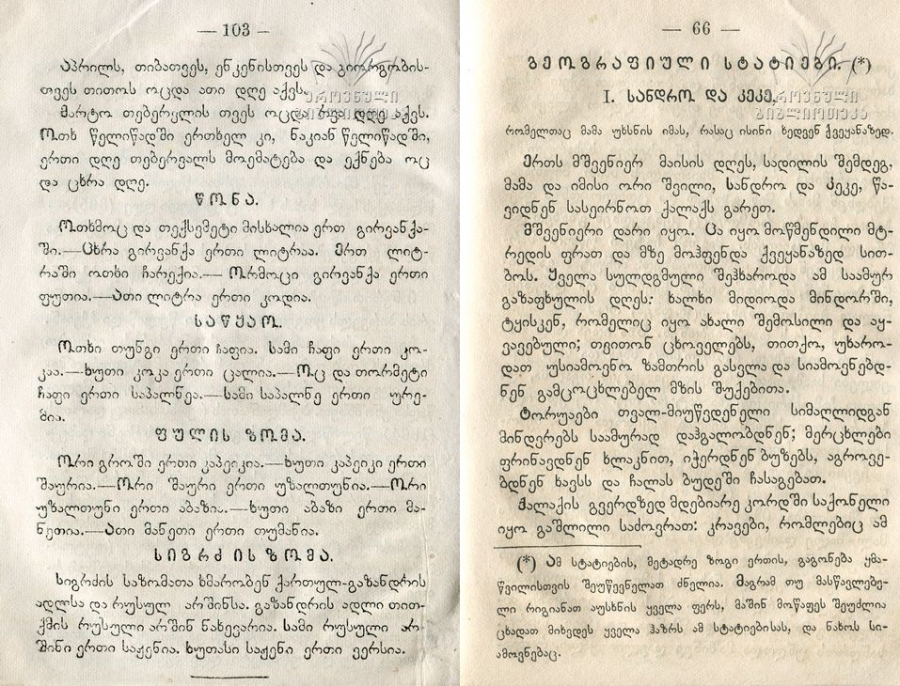 — 103 –
აპრილს, თიბათვეს, ენკენისთვეს და გიორგობის-
თვეს თითოს ოცდა ათი დღე აქვს.
მარტო თებერვლის თვეს ოცდა რვა დღე აქვს.
ოთხ წელიწადში ერთხელ კი, ნაკიან წელიწადში,
ერთი დღე თებერვალს მოემატება და ექნება ოც
და ცხრა დღე.
წონა.
ოთხმოც და თექსმეტი მისხალია ერთ გირვანქა-
ში.—ცხრა გირვანქა ერთი ლიტრაა. ერთ ლიტ-
რაში ოთხი ჩარექია.— ორმოცი გირვანქა ერთი
ფუთია.—ათი ლიტრა ერთი კოდია.
საწყაო.
ოთხი თუნგი ერთი ჩაფია. სამი ჩაფი ერთი კო-
კაა.—ხუთი კოკა ერთი ცალია.—ოც და თორმეტი
ჩაფი ერთი საპალნეა.—სამი საპალნე ერთი ურე-
მია.
ფულის ზომა.
ორი გროში ერთი კაპეიკია.—ხუთი კაპეიკი ერთი
შაურია.—ორი შაური ერთი უზალთუნია.—ორი
უზალთუნი ერთი აბაზია.—ხუთი აბაზი ერთი მა-
ნეთია.—ათი მანეთი ერთი თუმანია.
სიგრძის ზომა.
სიგრძის საზომათა ხმარობენ ქართულ-გაზანდრის
ადლსა და რუსულ არშინსა. გაზანდრის ადლი თით-
ქმის რუსული არშინ ნახევარია. სამი რუსული არ-
შინი ერთი საჟენია. ხუთასი საჟენი ერთი ვერსია.
— 66 —
გეოგრაფიული სტატიები. (*)
I. სანდრო და კეკე,
რომელთაც მამა უხსნის იმას, რასაც ისინი ხედვენ ქვეყანაზედ.
ერთს მშვენიერ მაისის დღეს, სადილის შემდეგ,
მამა და იმისი ორი შვილი, სანდრო და კეკე, წა-
ვიდნენ სასეირნოთ ქალაქს გარეთ.
მშვენიერი დარი იყო. ცა იყო მოწმენდილი მტ-
რედის ფრათ და მზე მოჰფენდა ქვეყანაზედ სით-
ბოს. ყველა სულდგმული შეჰხაროდა ამ საამურ
გაზაფხულის დღეს: ხალხი მიდიოდა მინდორში,
ტყისკენ, რომელიც იყო ახალი შემოსილი და აყ-
ვავებული; თეითონ ცხოველებს, თითქო, უხარო-
დათ უსიამოენო ზამთრის გასვლა და სიამოენებდ-
ნენ გამცოცხლებელ მზის შუქებითა.
ტოროები თვალ-მიუწვდენელი სიმაღლიდგან
მინდერებს საამურად დაჰგალობდნენ; მერცხლები
ფრინავდნენ ხლაკნით, იჭერდნენ ბუზებს, აგროვე-
ბდნენ ხავსს და ჩალას ბუდეში ჩასაგებათ.
ქალაქის გვერდზედ მდებიარე კორდში საქონელი
იყო გაშლილი საძოვრათ: კრავები, რომლებიც ამ
(*) ამ სტატიების, მეტადრე ზოგი ერთის, გაგონება ყმა-
წვილისთვის შეუწევნელათ ძნელია. მაგრამ თუ მასწავლებე-
ლი რიგიანათ აუხსნის ყველა ფერს, მაშინ მოწაფეს შეუძლია
ცხადათ მიხვდეს ყველა ჰაზრს ამ სტატიებისას, და ნახოს სი-
ამოვნებაც.
ეროვნული
ბიბლიოთეკა
ეროვნული
ბიბლიოთეკა